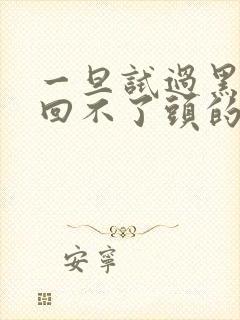 一旦試過黑
回不了頭的
安寧